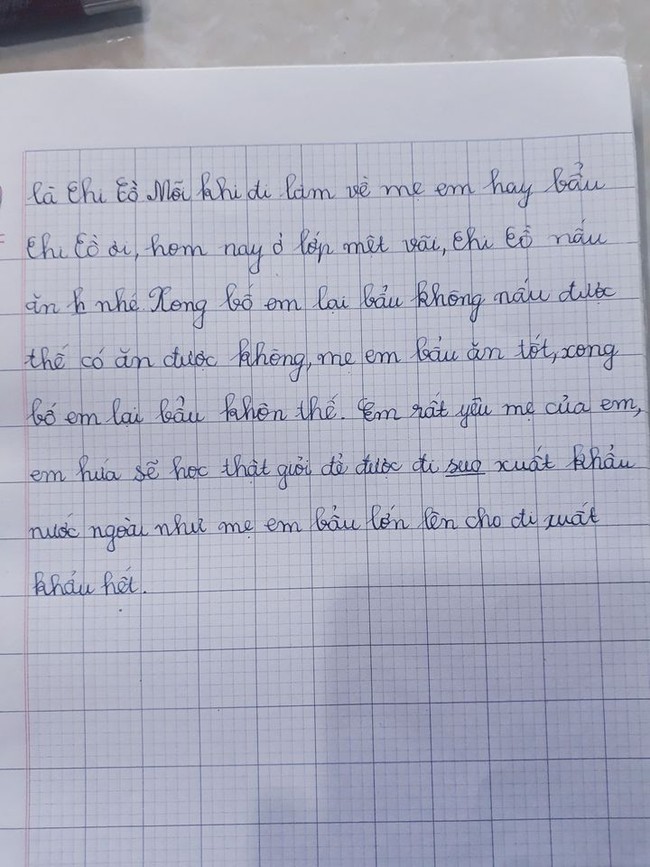 là Chi Cồ Mỗi khi đi làm về mẹ em hay bẩu
Chi Cồ ơi, hom nay ở lớp mệt vãi, Chi Cồ nấu
ăn h nhé Xong bố em lại bẩu không nấu được
thế có ăn được không, mẹ em bẩu ăn tốt, xong
bố em lại bẩu khôn thế. Em rất yêu mẹ của em,
em hứa sẽ học thật giỏi để được đi suo xuất khẩu
nước ngoài như mẹ em bẩu lớn lên cho đi xuất
khẩu hết.